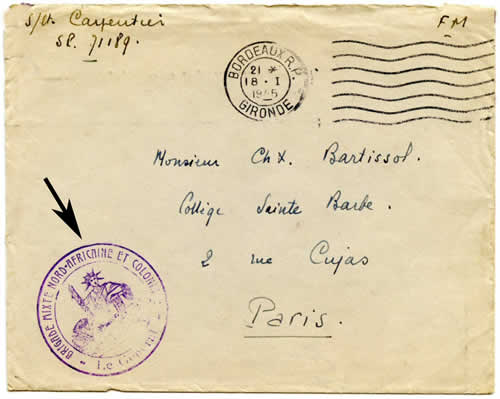 S/Lt Carpentier
SP. 71189.
F M
BORDEAUX R.P.
21 *
18 · I
1945
GIRONDE
Monsieur Ch X. Bartissol.
Collige Sainte Barbe.
2 rue Cujas
Paris.
BRIGADE MIXTE NORD-AFRICAINE ET
Le